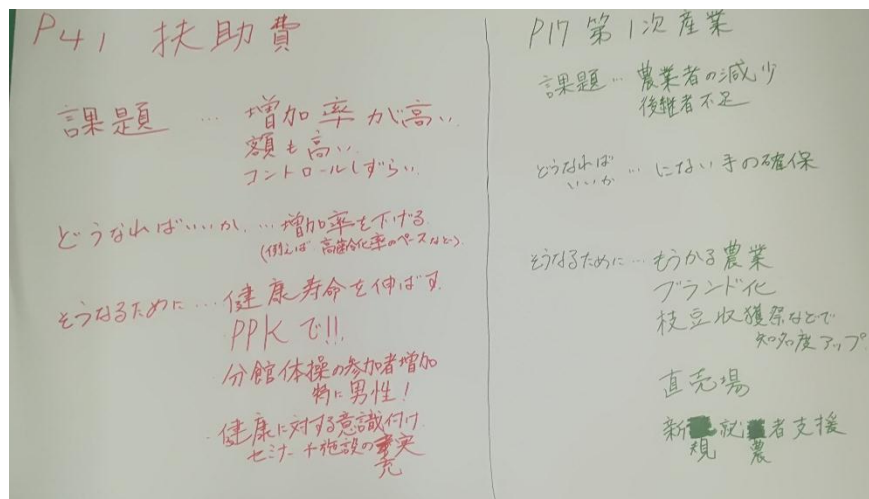 P41 扶助費
課題 … 増加率が高い
額も高い
コントロールしずらい
どうなればいいか … 増加率を下げる
(例えば 高齢化率のペースなど)
そうなるために … 健康寿命を伸ばす
PPKで!!
分館体操の参加者増加
特に男性!
健康に対する意識付け
セミナー 施設の充実
P17 第1次産業
課題 … 農業者の減少
後継者不足
どうなれば
いいか … にない手の確保
そうなるために … もうかる農業
ブランド化
枝豆収獲祭などで
知名度アップ
直売場
新規就農者支援